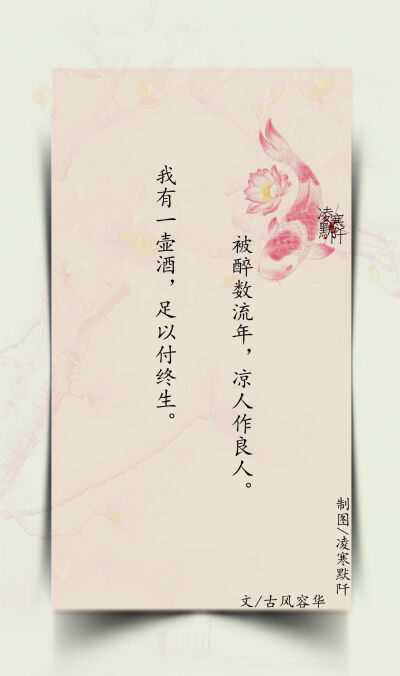 被醉数流年，凉人作良人。
我有一壶酒，足以付终生。
凌寒
默阡
制图/凌寒默阡
文/古风容华